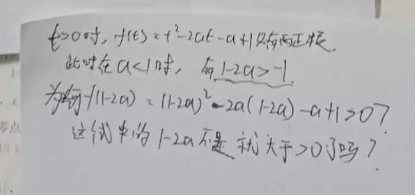 t>0时, f(t)=t²-2at-a+1只有两正根.
此时在a<1时, 有1-2a>-1.
为何f(1-2a)=(1-2a)²-2a(1-2a)-a+1>0?
这代串的1-2a不是就大于>0了吗?